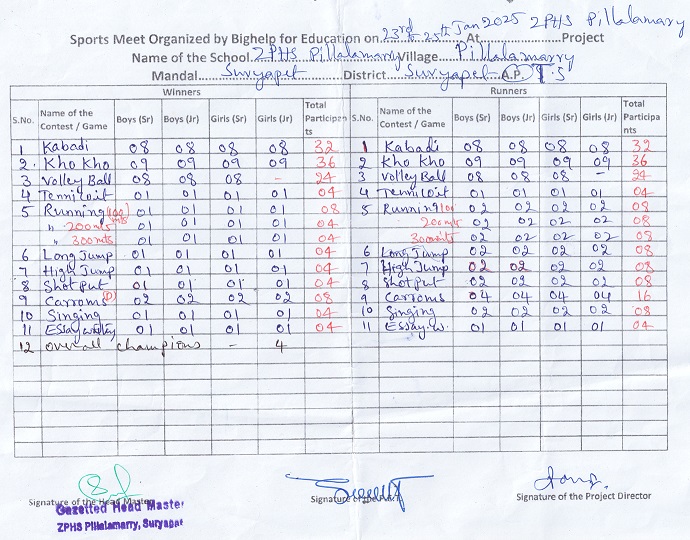 Sports Meet Organized by Bighelp for Education on 23rd 25th Jan 2025 At ZPHS Pillalamarry Project
Name of the School ZPHS Pillalamarry Village Pillalamarry
Mandal Suryapet District Suryapet A.P. T.S
Winners Runners
S.No. Name of the Contest / Game Boys (Sr) Boys (Jr) Girls (Sr) Girls (Jr) Total Participants S.No. Name of the Contest / Game Boys (Sr) Boys (Jr) Girls (Sr) Girls (Jr) Total Participants
1 Kabadi 08 08 08 08 32 1 Kabadi 08 08 08 08 32
2. Kho Kho 09 09 09 09 36 2 Kho Kho 09 09 09 09 36
3 Volley Ball 08 08 08 - 24 3 Volley Ball 08 08 08 - 24
4 Tennicoit 01 01 01 01 04 4 Tennicoit 01 01 01 01 04
5 Running (100 mts) 01 01 01 01 08 5 Running 100 02 02 02 02 08
" 200 mts 01 01 01 01 04 200 mts 02 02 02 02 08
" 300 mts 01 01 01 01 04 300 mts 02 02 02 02 08
6 Long Jump 01 01 01 01 04 6 Long Jump 02 02 02 02 08
7 High Jump 01 01 01 01 04 7 High Jump 02 02 02 02 08
8 Shot Put 01 01 01 01 04 8 Shot Put 02 02 02 02 08
9 Carroms (D) 02 02 02 02 08 9 Carroms 04 04 04 04 16
10 Singing 01 01 01 01 04 10 Singing 02 02 02 02 08
11 Essay 01 01 01 01 04 11 Essay w. 01 01 01 01 04
12 overall champions - 4
Signature of the Head Master Signature of the Signature of the Project Director
Gazetted Head Master
ZPHS Pillalamarry, Suryapet